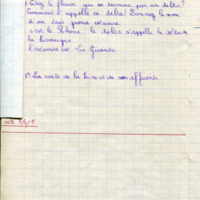 Citez le fleuve qui se termine par un delta ?
Comment s'appelle ce delta ? Donnez le nom
d'un très grand estuaire
c'est le Rhône. le delta s'appelle le delta de
la Camargue
l'estuaire est La Gironde
La carte de la et de ses affluents